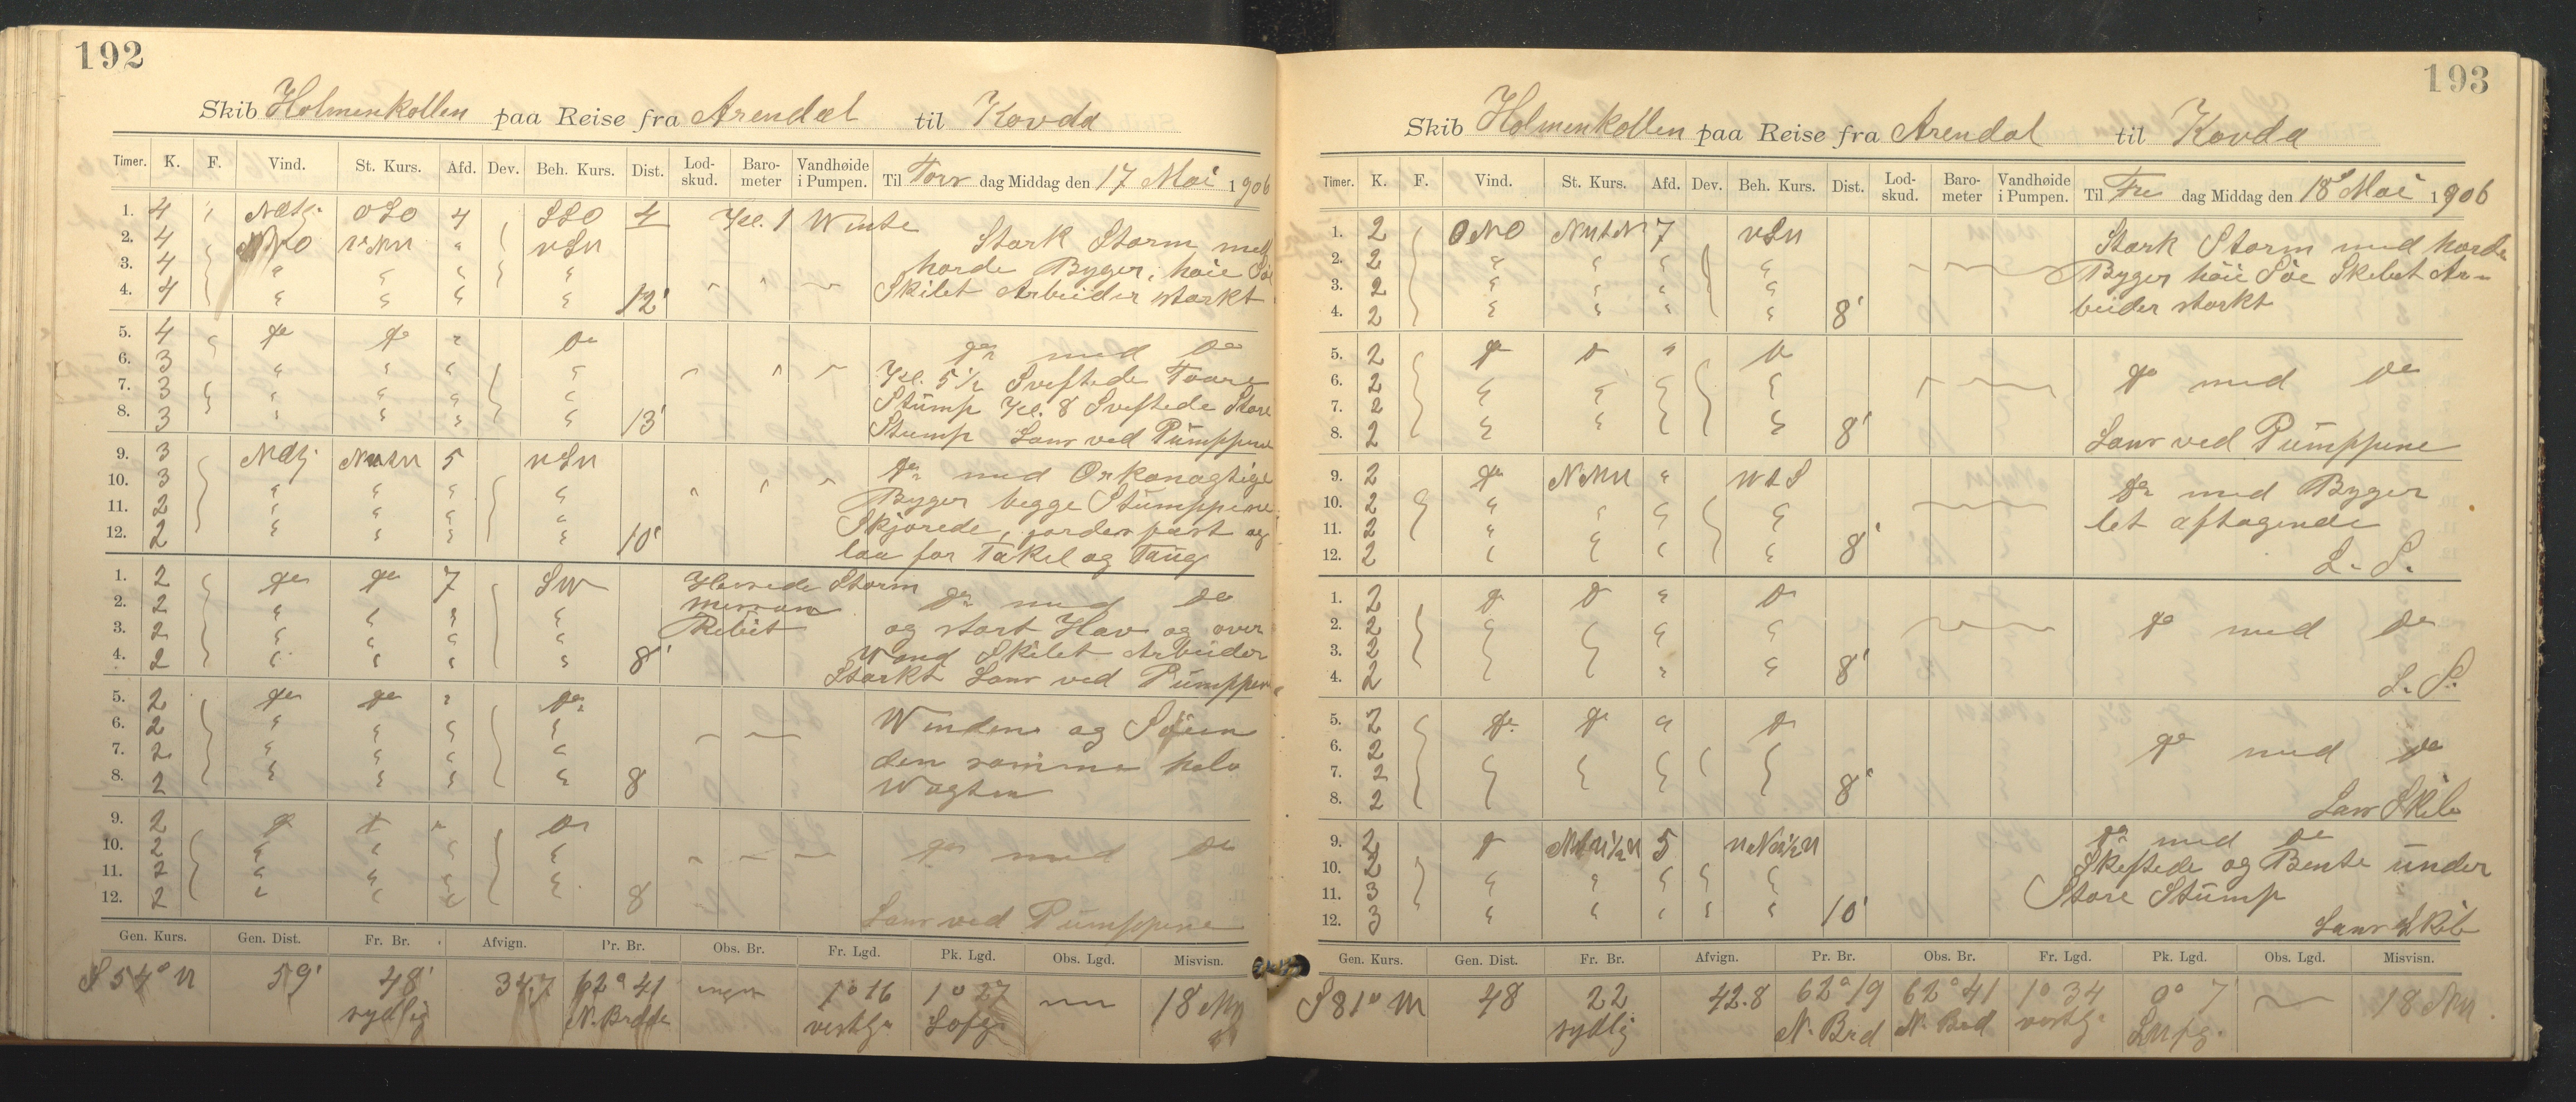 192
Skib Holmenkollen paa Reise fra Arendal til Kovda
Timer. K. F. Vind. St. Kurs. Afd. Dev. Beh. Kurs. Dist. Lod-skud. Baro-meter Vandhøide i Pumpen. Til Tors dag Middag den 17 Mai 1906
1. 4 " OSO 4 SSO 4 Kl. 1 Wente
2. 4 NNO " Stark Storm med
3. 4 " " " " harde Byger, høie Søe
4. 4 " " " " 12' Skibet Arbeider starkt
5. 4 do do " do do med do
6. 3 " " " " Kl. 5½ Sveftede Foore
7. 3 " " " " Stump Kl. 8 Sveftede Store
8. 3 " " " " 13' Stump Lens ved Pumppene
9. 3 5 do med Orkanagtige
10. 3 " " " " Byger begge Stumppene
11. 2 " " " " Skjørede, gordes fast og
12. 2 " " " " 10' laa for Takel og Taug
1. 2 do do 7 SW Storm
2. 2 " " " " do med do
3. 2 " " " " og stort Hav og over
4. 2 " " " " 8' Wand Skibet Arbeider
Starkt Lens ved Pumppen
5. 2 do do " do
6. 2 " " " " Winden og Søien
7. 2 " " " " den samme hele
8. 2 " " " " 8 Wagten
9. 2 do do " do
10. 2 " " " " do med do
11. 2 " " " "
12. 2 " " " " 8 Lens ved Pumppene
Gen. Kurs. Gen. Dist. Fr. Br. Afvign. Pr. Br. Obs. Br. Fr. Lgd. Pk. Lgd. Obs. Lgd. Misvisn.
S 54° W 59' 48' 34.7 62° 41 ingen 1° 16 1° 27 18
sydlig N. Bredde vestlg.
193
Skib Holmenkollen paa Reise fra Arendal til Kovda
Timer. K. F. Vind. St. Kurs. Afd. Dev. Beh. Kurs. Dist. Lod-skud. Baro-meter Vandhøide i Pumpen. Til Fre dag Middag den 18 Mai 1906
1. 2 ONO 7 Stark Storm med harde
2. 2 " " " " Byger høie Søe Skibet Ar-
3. 2 " " " " beider starkt
4. 2 " " " " 8'
5. 2 do do " do
6. 2 " " " " do med do
7. 2 " " " "
8. 2 " " " " 8' Lens ved Pumppene
9. 2 do " do med Byger
10. 2 " " " " let aftagende
11. 2 " " " "
12. 2 " " " " 8' L. S.
1. 2 do do " do
2. 2 " " " " do med do
3. 2 " " " "
4. 2 " " " " 8' L. S.
5. 2 do do " do
6. 2 " " " " do med do
7. 2 " " " "
8. 2 " " " " 8' Lens Skib
9. 2 do 5 do med do
10. 2 " " " " og Bente under
11. 3 " " " " Store Stump
12. 3 " " " " 10' Lens Skib
Gen. Kurs. Gen. Dist. Fr. Br. Afvign. Pr. Br. Obs. Br. Fr. Lgd. Pk. Lgd. Obs. Lgd. Misvisn.
S 81° W 48 22 42.8 62° 19 62° 41 1° 34 0° 7 18
sydlig N. Brd N. Bred vestlg.